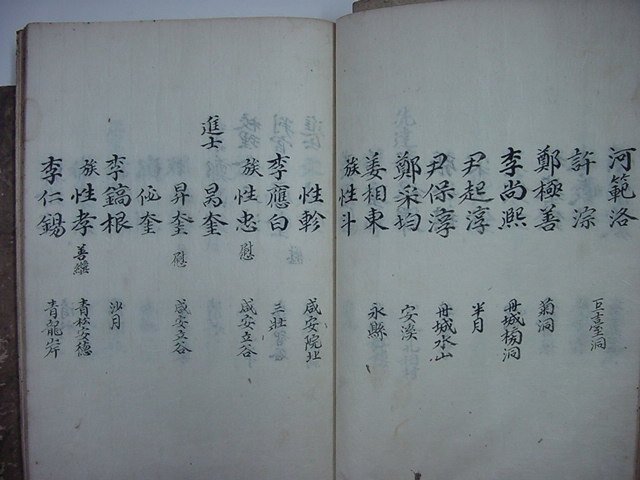 河範洛
許淙 巨吉宝洞
鄭極善 菊洞
李尚熙 丹城榜洞
尹起淳 半月
尹保淳 丹城水山
鄭采均 安溪
姜相東 永縣
族性斗
性軫 咸安院北
李應白 三壯
族性忠 慰 咸安立谷
進士 昺奎
昇奎 慰 咸安立谷
佖奎
李鎬根 沙月
族性孝 善繼 青松安德
李仁錫 青龍岸